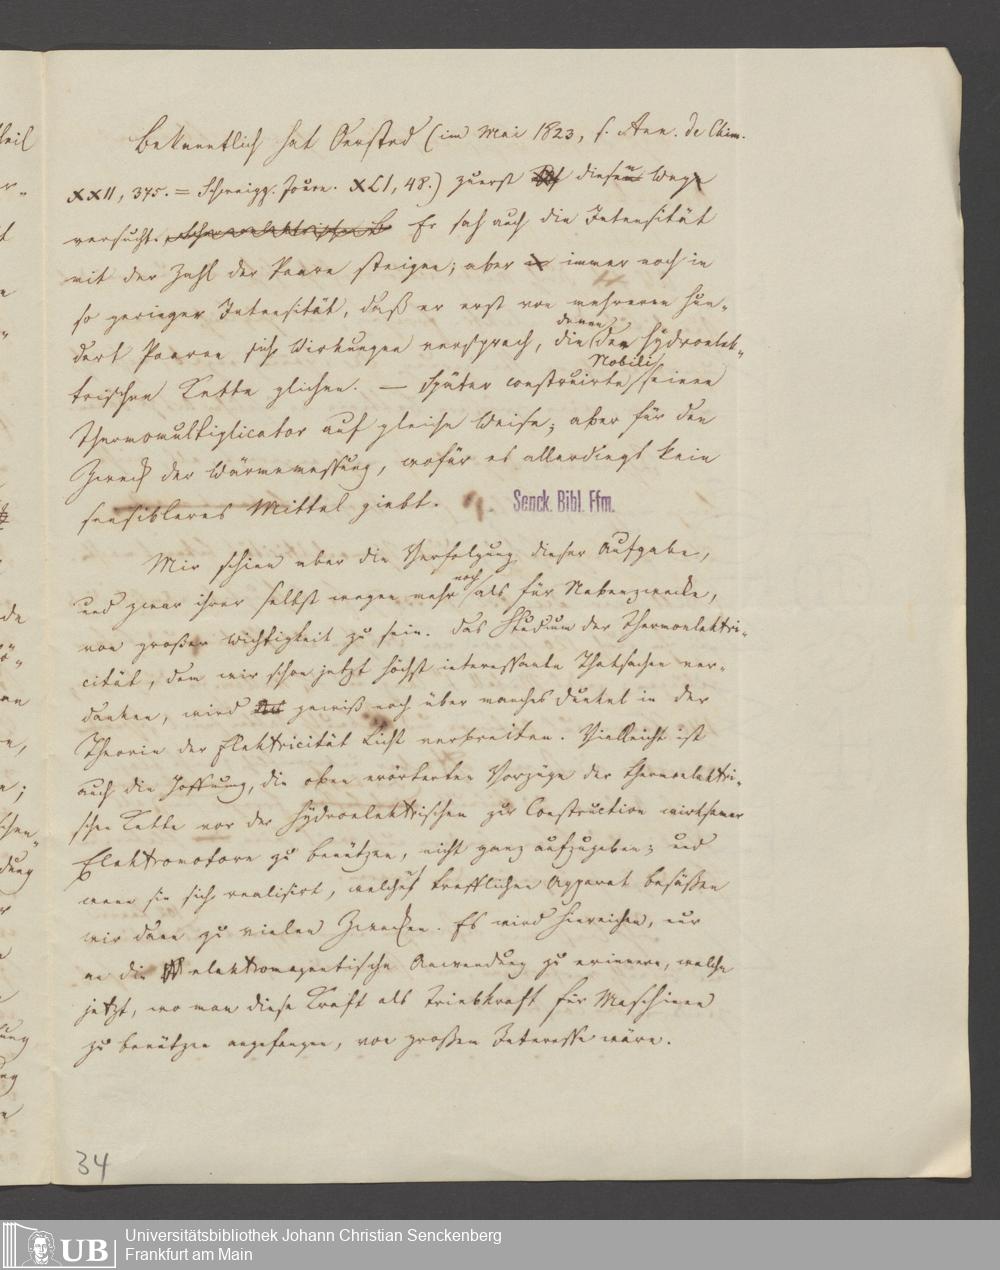 Bekanntlich hat Oersted (im Mai 1823, s. Ann. de Chim.
XXII, 375. = Schweigg. Journ. XLI, 48.) zuerst diesen Weg
versucht. Er sah auch die Intensität
mit der Zahl der Paare steigen; aber immer noch in
so geringer Intensität, daß er erst von mehreren hun-
dert Paaren sich Wirkungen versprach, die denen der hydroelek-
trischen Kette glichen. — Später construirte Nobili seinen
Thermomultiplicator auf gleiche Weise; aber für den
Zweck der Wärmemessung, wofür es allerdings kein
sensibleres Mittel giebt.
Senck. Bibl. Ffm.
Mir schien aber die Verfolgung dieser Aufgabe,
und zwar ihrer selbst wegen mehr noch als für Nebenzwecke,
von großer Wichtigkeit zu sein. Das Studium der Thermoelektri-
cität, dem wir schon jetzt höchst interessante Thatsachen ver-
danken, wird gewiß noch über manches Dunkel in der
Theorie der Elektricität Licht verbreiten. Vielleicht ist
auch die Hoffnung, die oben erörterten Vorzüge der thermoelektri-
schen Kette vor der hydroelektrischen zur Construction wirksamer
Elektromotore zu benützen, nicht ganz aufzugeben; und
wenn sie sich realisirt, welches trefflichen Apparat besäßen
wir dann zu vielen Zwecken. Es wird hinreichen, nur
an die elektromagnetische Anwendung zu erinnern, welche
jetzt, wo man diese Kraft als Triebkraft für Maschinen
zu benützen angefangen, von großem Interesse wäre.
34
UB
Universitätsbibliothek Johann Christian Senckenberg
Frankfurt am Main